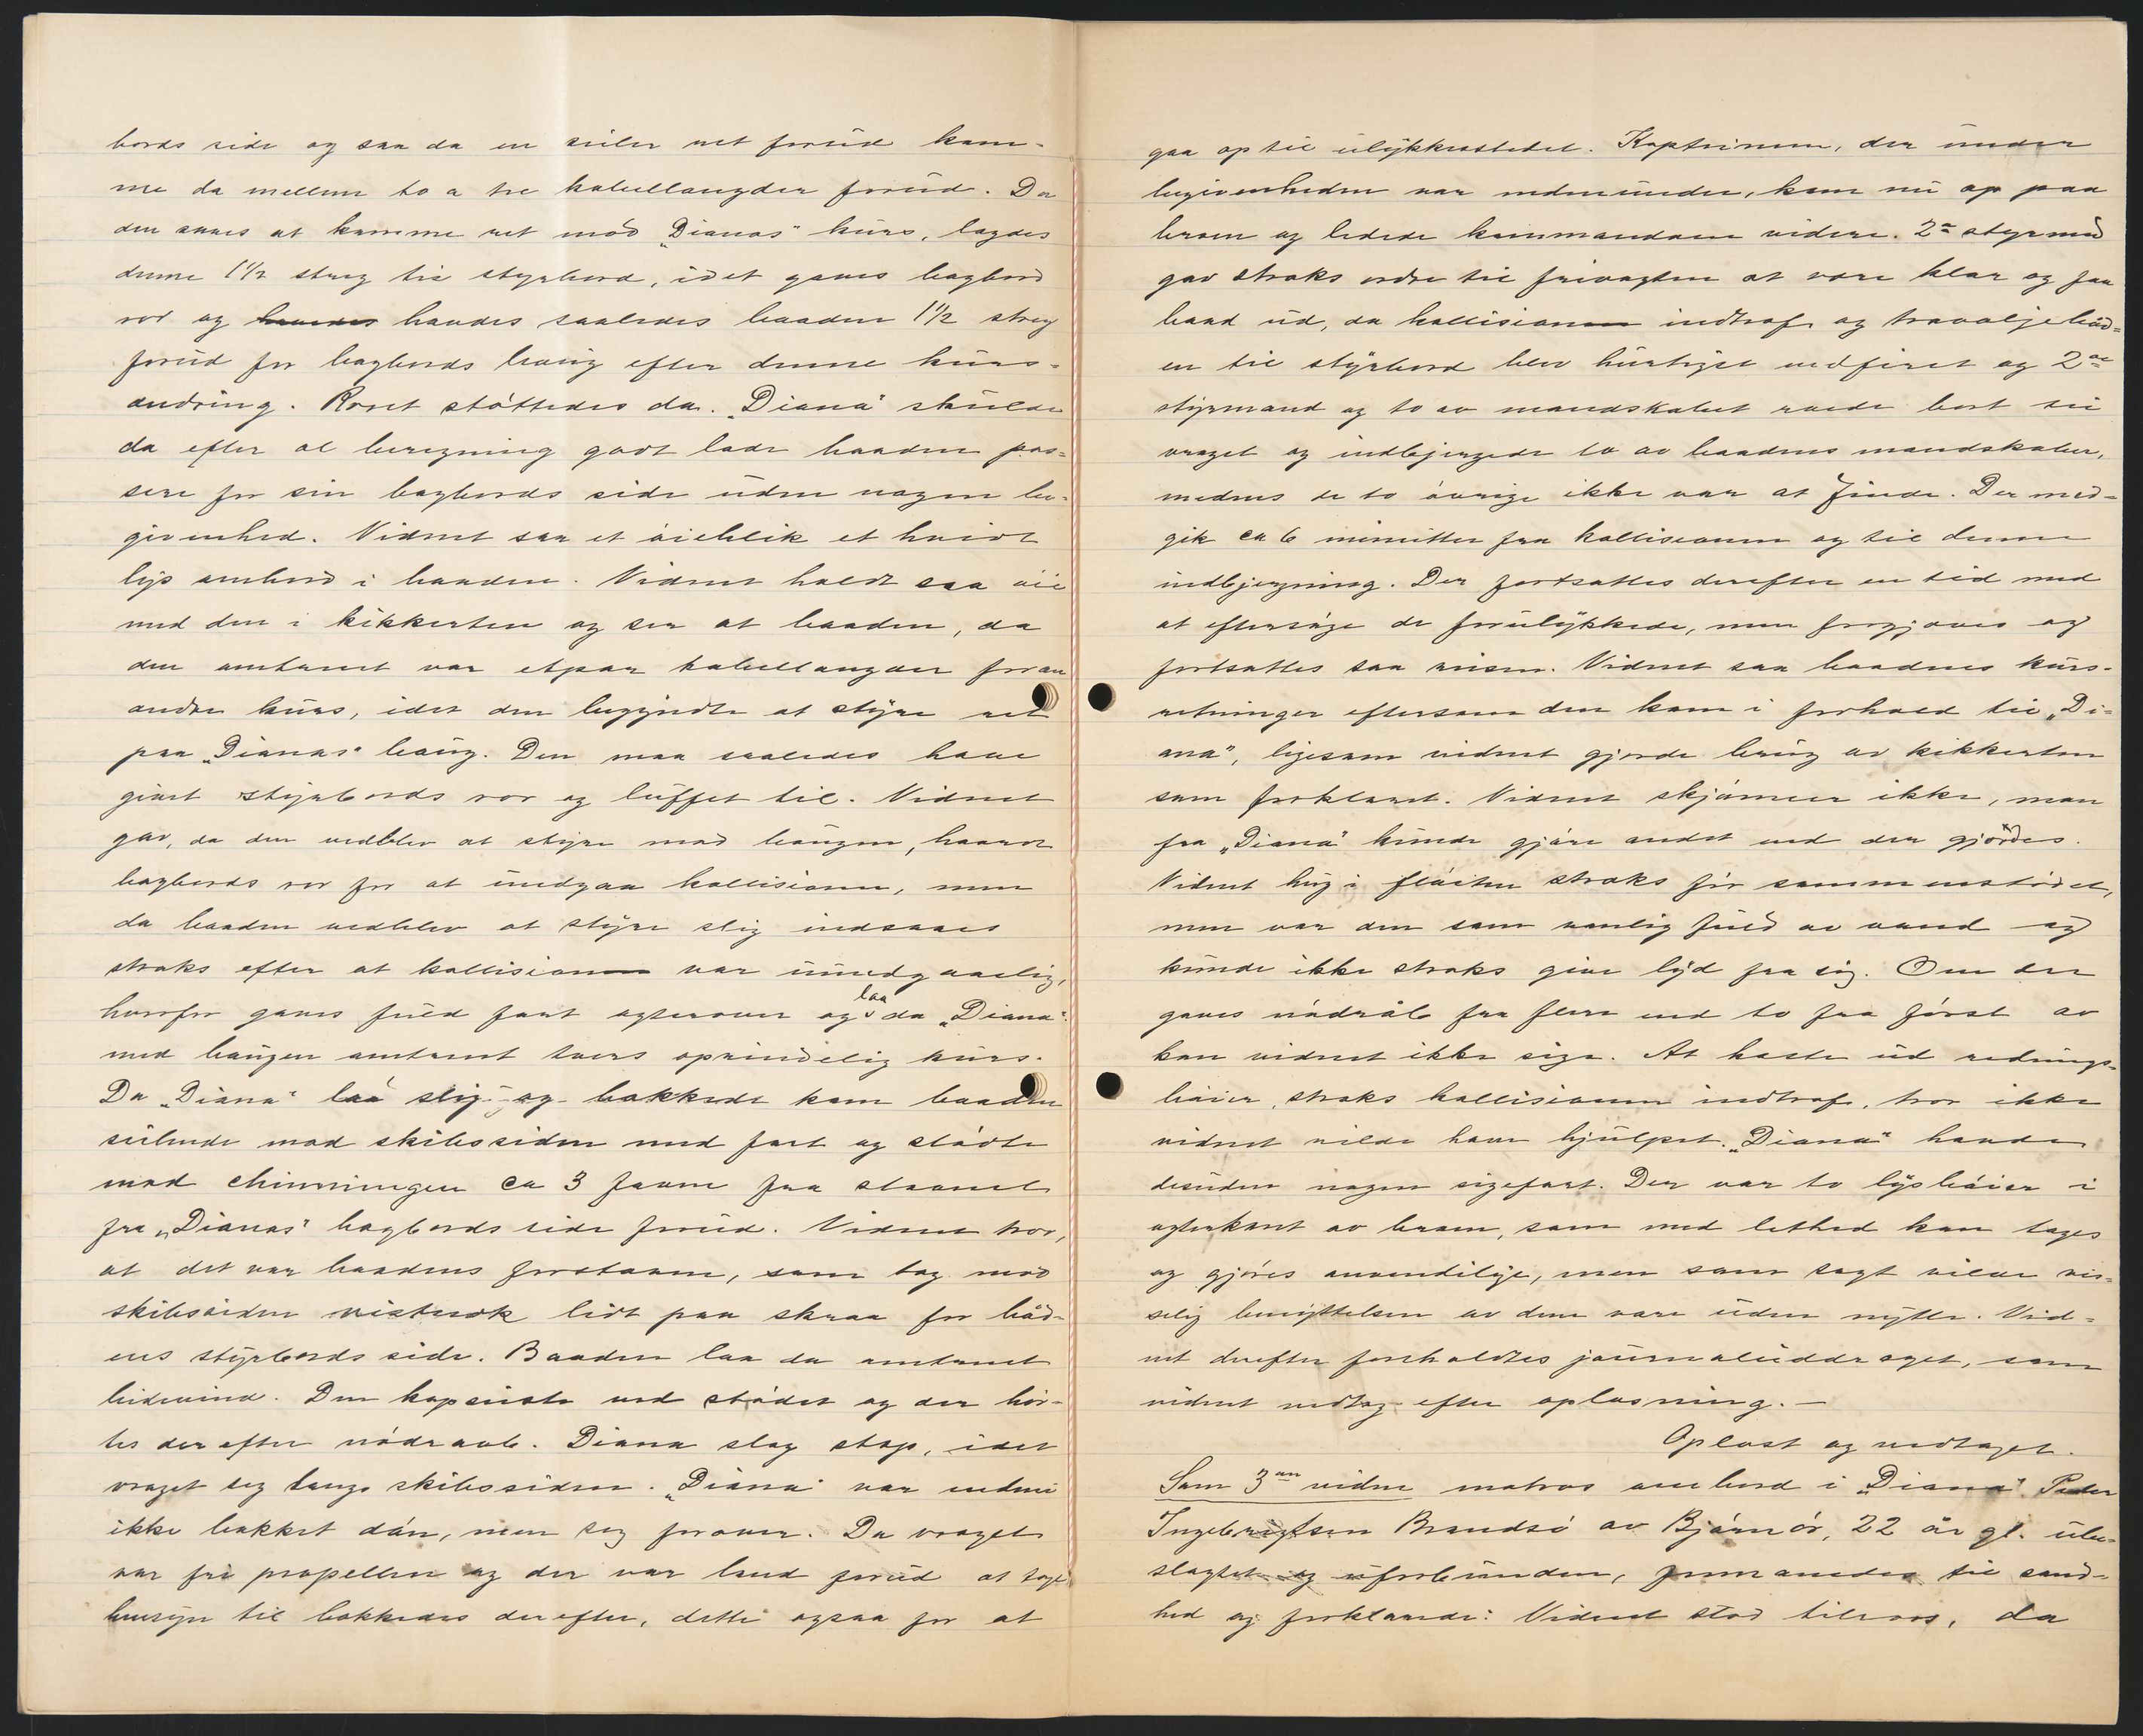 bords side og saa da en seiler ret forud kom-
me da mellem to a tre kabellængder forud. Da
den saaes at komme ret mod „Dianas" kurs, lagdes
denne 1½ streg til styrbord, idet gaves bagbord
ror og havdes havdes saaledes baaden 1½ streg
forud for bagbords baug efter denne kurs-
andring. Roret støttedes da. „Diana" skulde
da efter al beregning godt lade baaden pas-
sere for sin bagbords side uden nogen be-
givenhed. Vidnet saa et øieblik et hvidt
lys ombord i baaden. Vidnet holdt saa øie
med den i kikkerten og ser at baaden, da
den omtrent var etpar kabellængder foran
andre kurs, idet den begyndte at styre ret
paa „Dianas" baug. Den maa saaledes have
givet styrbords ror og luffet til. Vidnet
gav, da den vedblev at styre mod baugen, haardt
bagbords ror for at undgaa kollisionen, men
da baaden vedblev at styre slig indsaaes
straks efter at kollisionen var uundgaaelig,
hvorfor gaves fuld fart agterover og laa da „Diana"
med baugen omtrent tvers oprindelig kurs.
Da „Diana" laa slig og bakkede kom baaden
seilende mod skibssiden med fart og stødte
mod chimningen ca 3 favne fra stavnet
fra „Dianas" bagbords side forud. Vidnet tror,
at det var baadens forstavn, som tog mod
skibssiden vistnok lidt paa skraa for båd-
ens styrbords side. Baaden laa da omtrent
bidevind. Den kapseiste ved stødet og der hør-
tes derefter nødraab. Diana slog stop, idet
vraget seg langs skibssiden. „Diana" var endnu
ikke bakket død, men seg forover. Da vraget
var fri propellen og der var land forud at tage
hensyn til bakkedes derefter, dette ogsaa for at
gaa op til ulykkesstedet. Kapteinen, der under
begivenheden var nedenunder, kom nu op paa
broen og ledede kommandoen videre. 2en styrmd
gav straks ordre til frivagten at være klar og faa
baad ud, da kollisionen indtraf og travaljebåd-
en til styrbord blev hurtigst nedfiret og 2en
styrmand og to av mandskabet roede bort til
vraget og indbjergede to av baadens mandskaber,
medens de to øvrige ikke var at finde. Der med-
gik ca 6 minutter fra kollisionen og til denne
indbjergning. Der fortsattes derefter en tid med
at eftersøge de forulykkede, men forgjæves og
fortsattes saa reisen. Vidnet saa baadens kurs-
retninger eftersom den kom i forhold til „Di-
ana", ligesom vidnet gjorde brug av kikkerten
som forklaret. Vidnet skjønner ikke, man
fra „Diana" kunde gjøre andet end der gjordes.
Vidnet hug i fløiten straks før sammenstødet,
men var den som vanlig fuld av vand og
kunde ikke straks give lyd fra sig. Om der
gaves nødråb fra flere end to fra først av
kan vidnet ikke sige. At kaste ud rednings-
bøier, straks kollisionen indtraf, tror ikke
vidnet vilde have hjulpet. „Diana" havde
desuden nogen sigefart. Der var to lysbøier i
agterkant av broen, som med lethed kan tages
og gjøres anvendelige, men som sagt vilde vis-
selig benyttelsen av dem være uden nytte. Vid-
net derefter foreholdtes journaluddraget, som
vidnet vedtog efter oplæsning. —
Oplæst og vedtaget.
Som 3die vidne matros ombord i „Diana" Peder
Ingebrigtsen Brandsø av Bjørnør, 22 år gl. ube-
slagtet og uforbunden, formanedes til sand-
hed og forklarede: Vidnet stod tilrors, da